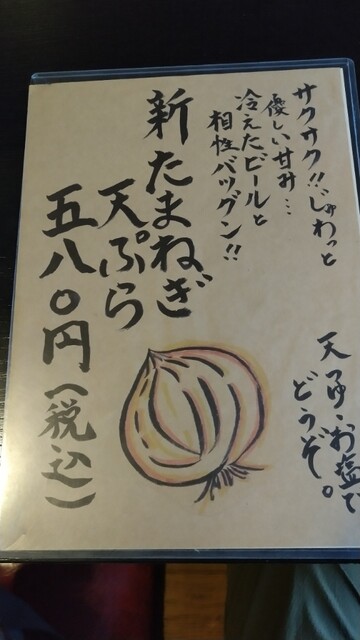 サクサク!!じゅわっと
優しい甘み…
冷えたビールと
相性バツグン!!
新たまねぎ
天ぷら
五八〇円(税込)
天つゆ・お塩で
どうぞ。